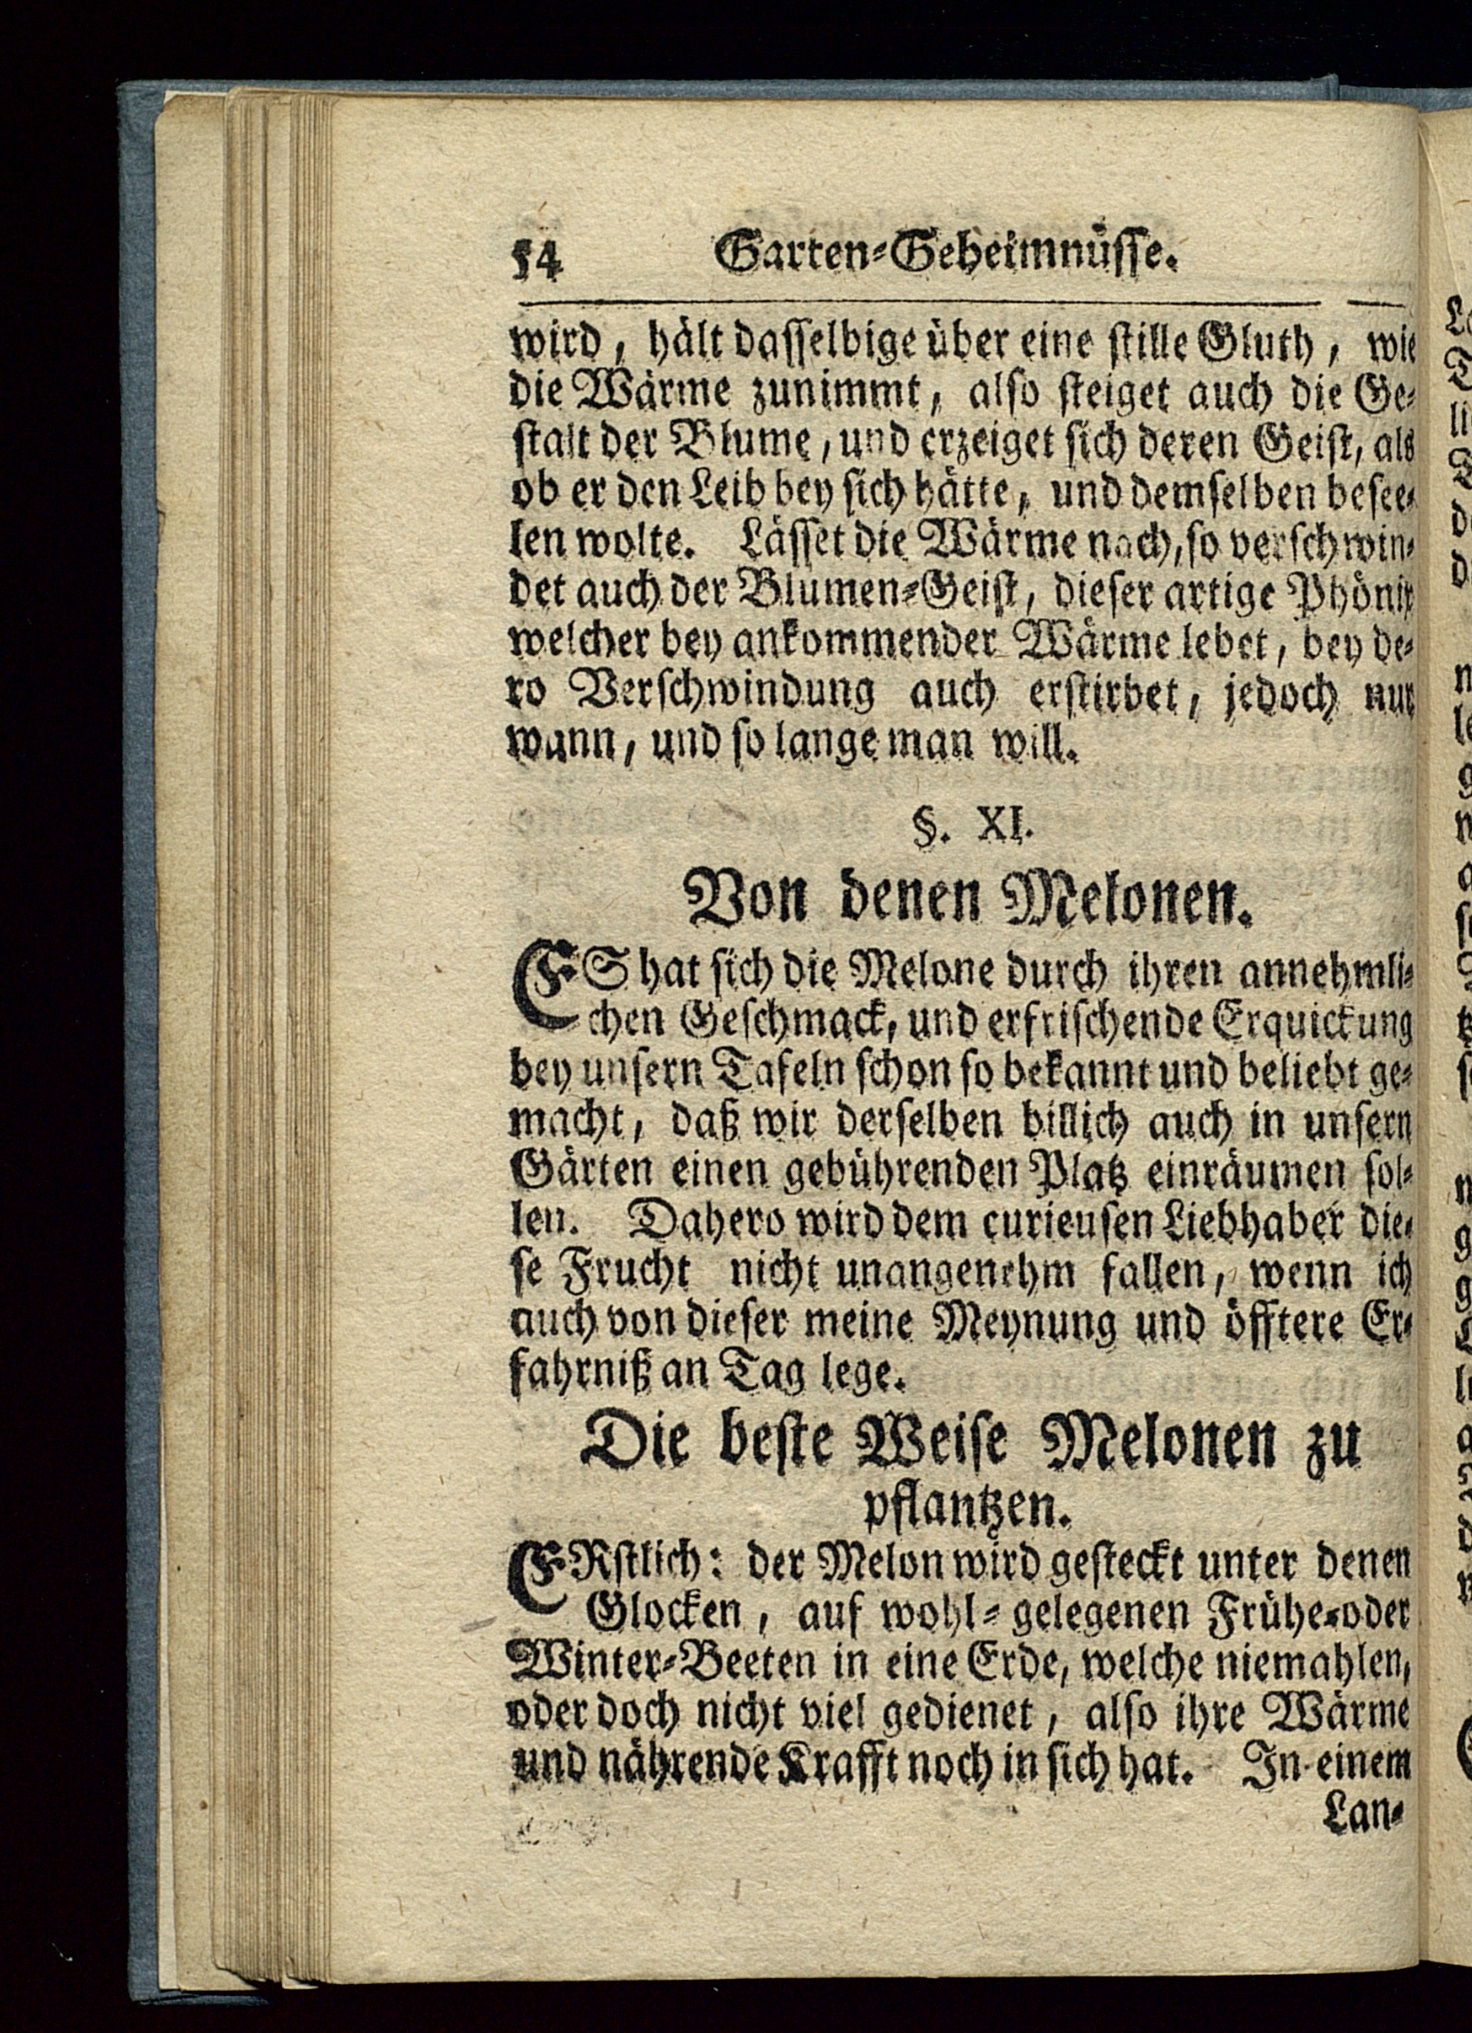 54 Garten-Geheimnüsse.
wird, hält dasselbige über eine stille Gluth, wie
die Wärme zunimmt, also steiget auch die Ge-
stalt der Blume, und erzeiget sich deren Geist, als
ob er den Leib bey sich hätte, und demselben besee-
len wolte. Lässet die Wärme nach, so verschwin-
det auch der Blumen-Geist, dieser artige Phönix
welcher bey ankommender Wärme lebet, bey de-
ro Verschwindung auch erstirbet, jedoch nur
wann, und so lange man will.
§. XI.
Von denen Melonen.
ES hat sich die Melone durch ihren annehmli-
chen Geschmack, und erfrischende Erquickung
bey unsern Tafeln schon so bekannt und beliebt ge-
macht, daß wir derselben billich auch in unsern
Gärten einen gebührenden Platz einräumen sol-
len. Dahero wird dem curieusen Liebhaber die-
se Frucht nicht unangenehm fallen, wenn ich
auch von dieser meine Meynung und öfftere Er-
fahrniß an Tag lege.
Die beste Weise Melonen zu
pflantzen.
ERstlich: der Melon wird gesteckt unter denen
Glocken, auf wohl-gelegenen Frühe-oder
Winter-Beeten in eine Erde, welche niemahlen,
oder doch nicht viel gedienet, also ihre Wärme
und nährende Krafft noch in sich hat. In einem
Lan-